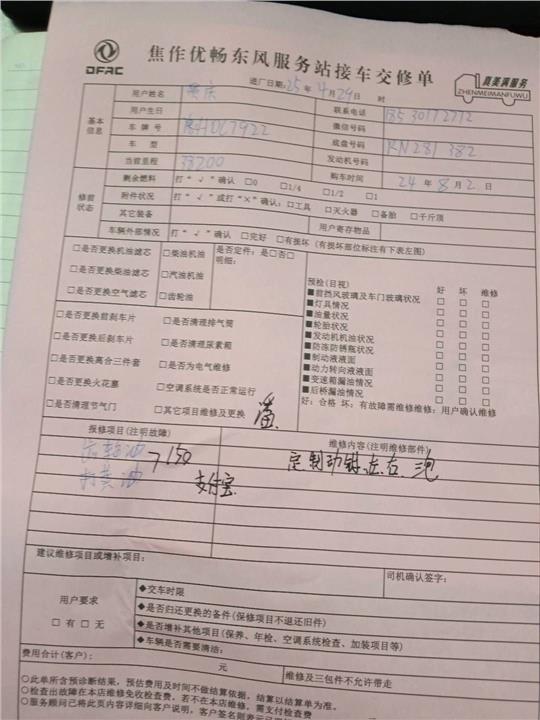 DFAC
焦作优畅东风服务站接车交修单
真美满服务
ZHENMEIMANFUWU
进厂日期:25年4月29日 时
基本信息
用户姓名
联系电话
用户生日
微信号码
车牌号
底盘号码 RN281382
车型
发动机号码
当前里程 33700
购车时间 24年8月2日
修前状态
剩余燃料 打“√”确认 □0 □1/4 □1/2 □1
附件状况 打“√”或打“×”确认:□工具 □灭火器 □备胎 □千斤顶
其它装备 用户寄存物品
车辆外部情况 打“√”确认 □完好 □有损坏(有损坏部位标注有下表左图)
□是否更换机油滤芯 □柴油机油 是否定件:是□否□
明细:
□是否更换柴油滤芯 □汽油机油
□是否更换空气滤芯 □齿轮油
预检(目视) 好 坏 维修
■前挡风玻璃及车门玻璃状况 □ □ □
■灯具情况 □ □ □
■油量状况 □ □ □
■轮胎状况 □ □ □
■发动机机油状况 □ □ □
■防冻防锈瓶状况 □ □ □
■制动液液面 □ □ □
■动力转向液液面 □ □ □
■变速箱漏油情况 □ □ □
■后桥漏油情况 □ □ □
好:合格 坏:有故障需维修维修:用户确认维修
□是否更换前刹车片 □是否清理排气筒
□是否更换后刹车片 □是否清理尿素箱
□是否更换离合三件套 □是否为电气维修
□是否更换火花塞 □空调系统是否正常运行
□是否清理节气门 □其它项目维修及更换
报修项目(注明故障) 维修内容(注明维修部件)
齿轮油 7150
打黄油 支付宝
左右
建议维修项目或增补项目:
司机确认签字:
用户要求
□有 □无
◆交车时限
◆是否归还更换的备件(保修项目不退还旧件)
◆是否增补其他项目(保养、年检、空调系统检查、加装项目等)
◆车辆是否需要清洁:
费用合计(客户): 元 维修及三包件不允许带走
○此单所含预诊断结果,预估费用及时间不做结算依据,结算以结算单为准。
○检查出故障在本店维修免收检查费,若不在本店维修,需支付检查费
○服务顾问已将此页内容详细向客户说明,客户签名则表示已